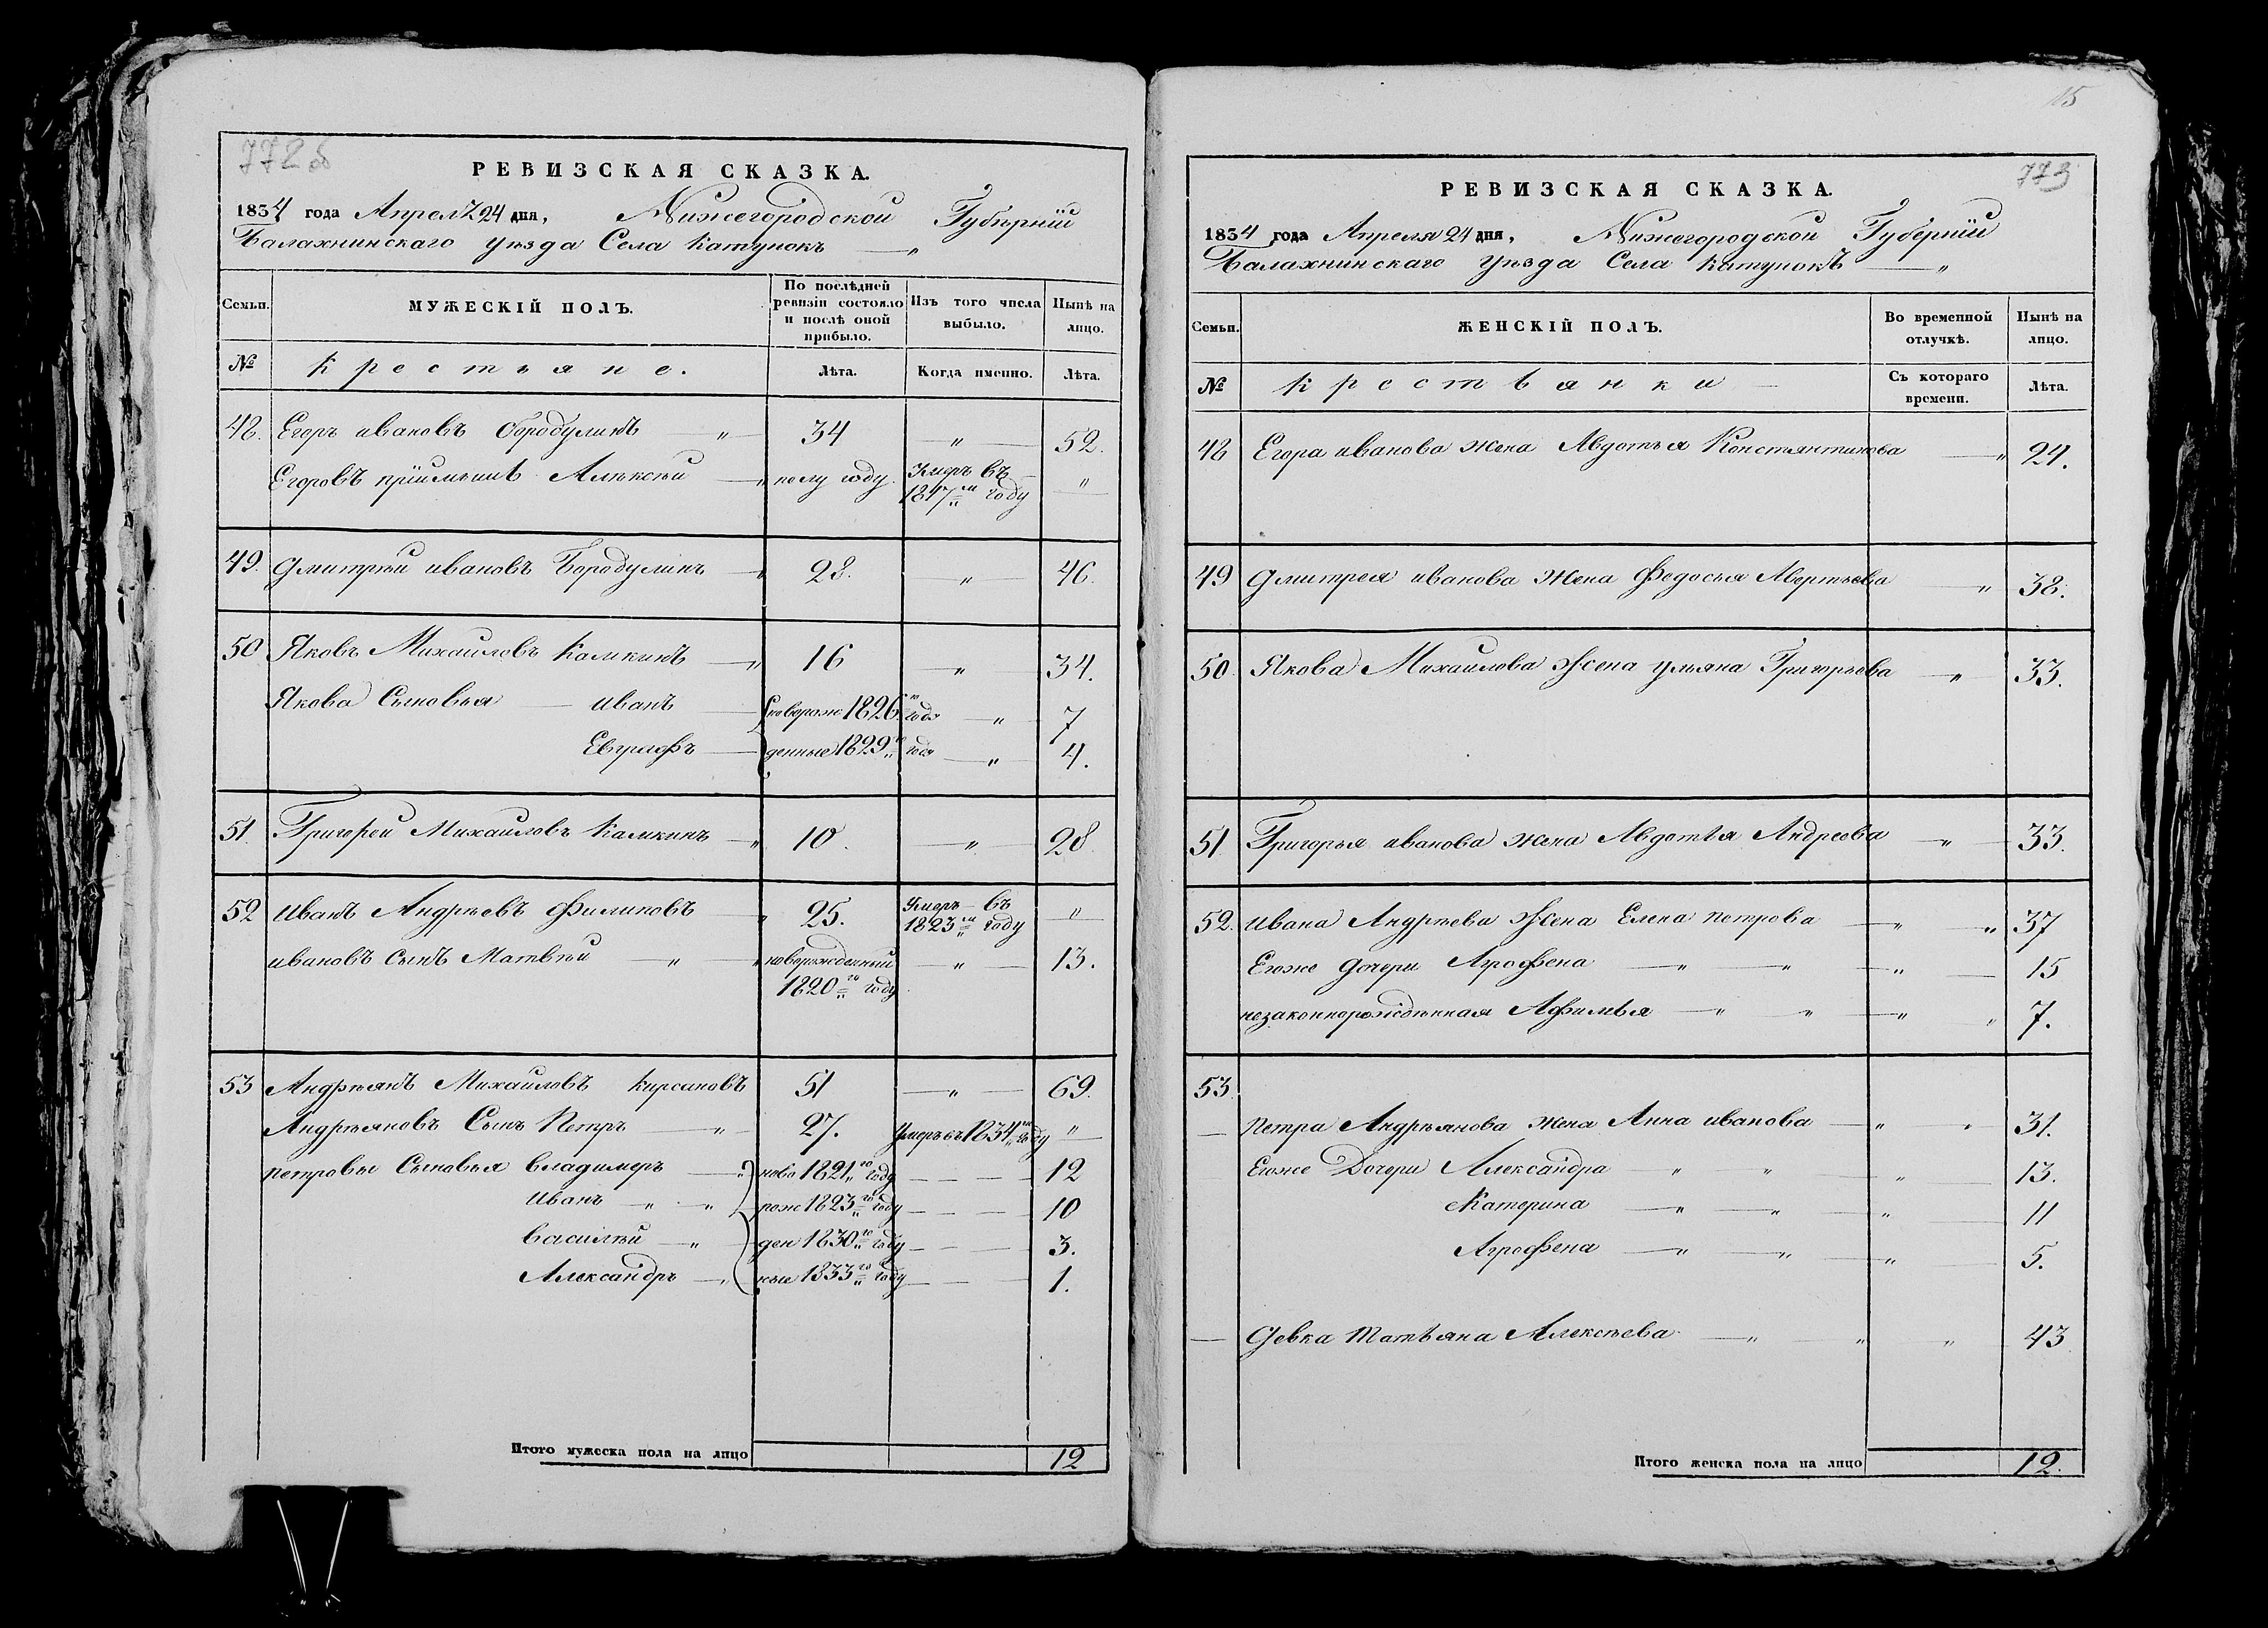 772 об
РЕВИЗСКАЯ СКАЗКА.
1834 года Апреля 24 дня, Нижегородской Губернiи
Балахнинскаго уѣзда Села Катунокъ — "
Семьи. МУЖЕСКІЙ ПОЛЪ. По послѣдней ревизіи состояло и послѣ оной прибыло. Изъ того числа выбыло. Нынѣ на лицо.
№ крестьяне. Лѣта. Когда именно. Лѣта.
48. Егоръ ивановъ бородулинъ — " 34 — " — 52.
Егоровъ прiимышъ Алексѣй — " полу году. Умеръ въ 1847мъ году "
49. Дмитрѣй ивановъ Бородулинъ — " 28. — " — 46.
50 Яковъ Михаиловъ Калкинъ — " 16 — " — 34.
Якова Сыновья — иванъ — новорож 1826го года — " — 7
Евграфъ — денные 1829го года — " — 4.
51. Григорей Михаиловъ Калкинъ — " 10. — " — 28.
52 иванъ Андрѣевъ Филиповъ " 25. Умеръ въ 1823мъ году — " —
ивановъ сынъ Матвѣй — " — " новорожденный — " — 13.
1820го году
53 Андрѣянъ Михаиловъ Кирсановъ 51 — " — 69.
Андрѣяновъ Сынъ Петръ — " — 27. Умеръ въ 1834мъ году "
петровы Сыновья владимеръ — " ново 1821го году — — — 12
иванъ — " — " рож 1823го году — — — 10
василѣй — " — ден 1830го году — — — 3.
Александръ — " ные 1833го году — — — 1.
Итого мужеска пола на лицо 12
15
773
РЕВИЗСКАЯ СКАЗКА.
1834 года Апреля 24 дня, Нижегородской Губернiи
Балахнинскаго уѣзда Села Катунокъ — "
Семьи. ЖЕНСКІЙ ПОЛЪ. Во временной отлучкѣ. Нынѣ на лицо.
№ крестьянки — Съ котораго времени. Лѣта.
48 Егора иванова жена Авдотья Констянтинова — " 24.
49 Дмитрея иванова жена Федосья Аверьева — " 38.
50. Якова Михаилова жена ульяна Григорьева — " — 33.
51. Григорья иванова жена Авдотья Андреева — " — 33.
52. ивана Андрѣева жена Елена петрова — " — " 37
Еюже дочери Агрофена — " — " — " — 15
незаконнорожденная Афимья — " " — " " 7.
53.
— Петра Андрѣянова жена Анна иванова — " " 31.
Еюже Дочери Александра — " " — " — 13.
Катерина — " — " — " — 11
Агрофена — " — " — " — 5.
— Девка татьяна Алексѣева — " " " 43
Итого женска пола на лицо 12.